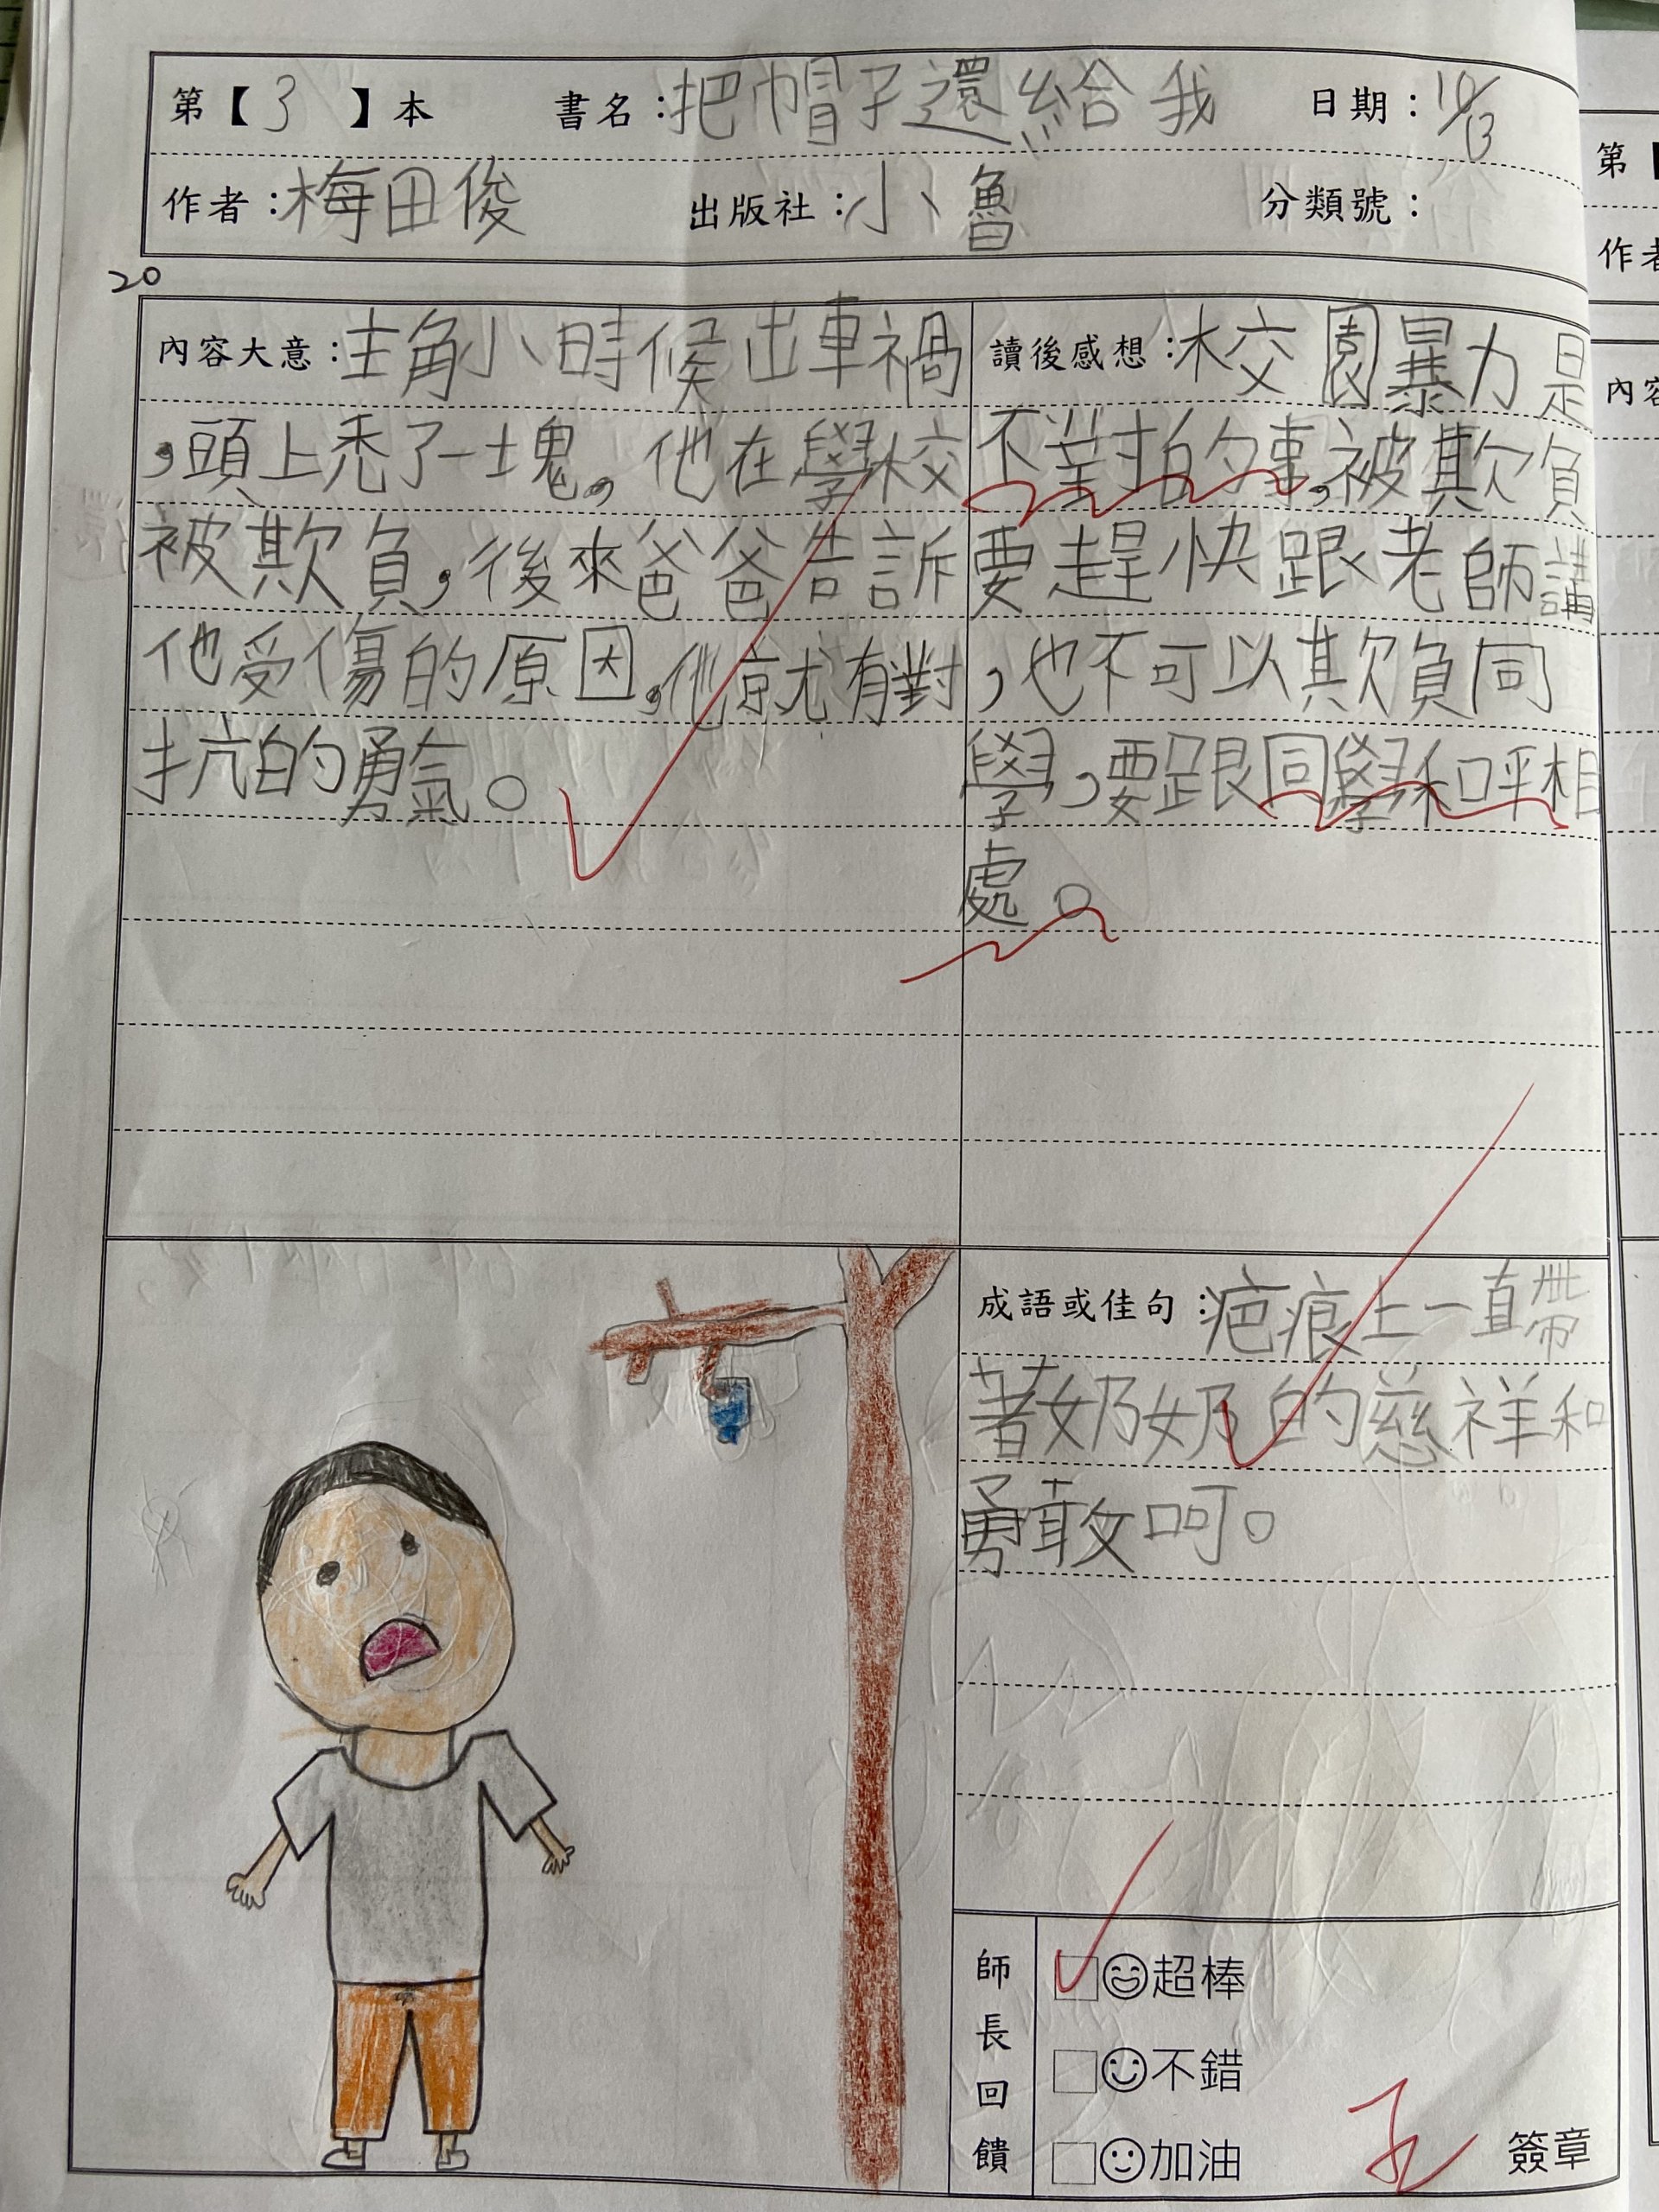 第【3】本 書名：把帽子還給我 日期：10/13
作者：梅田俊 出版社：小魯 分類號：
20
內容大意：主角小時候出車禍
，頭上禿了一塊，他在學校
被欺負，後來爸爸告訴
他受傷的原因，他就有對
抗的勇氣。
讀後感想：校園暴力是
不對的事，被欺負
要趕快跟老師講
，也不可以欺負同
學，要跟同學和呼相
處。
成語或佳句：疤痕上一直帶
著奶奶的慈祥和
勇敢呵。
師長回饋
超棒
不錯
加油
簽章
第【
作者
內容